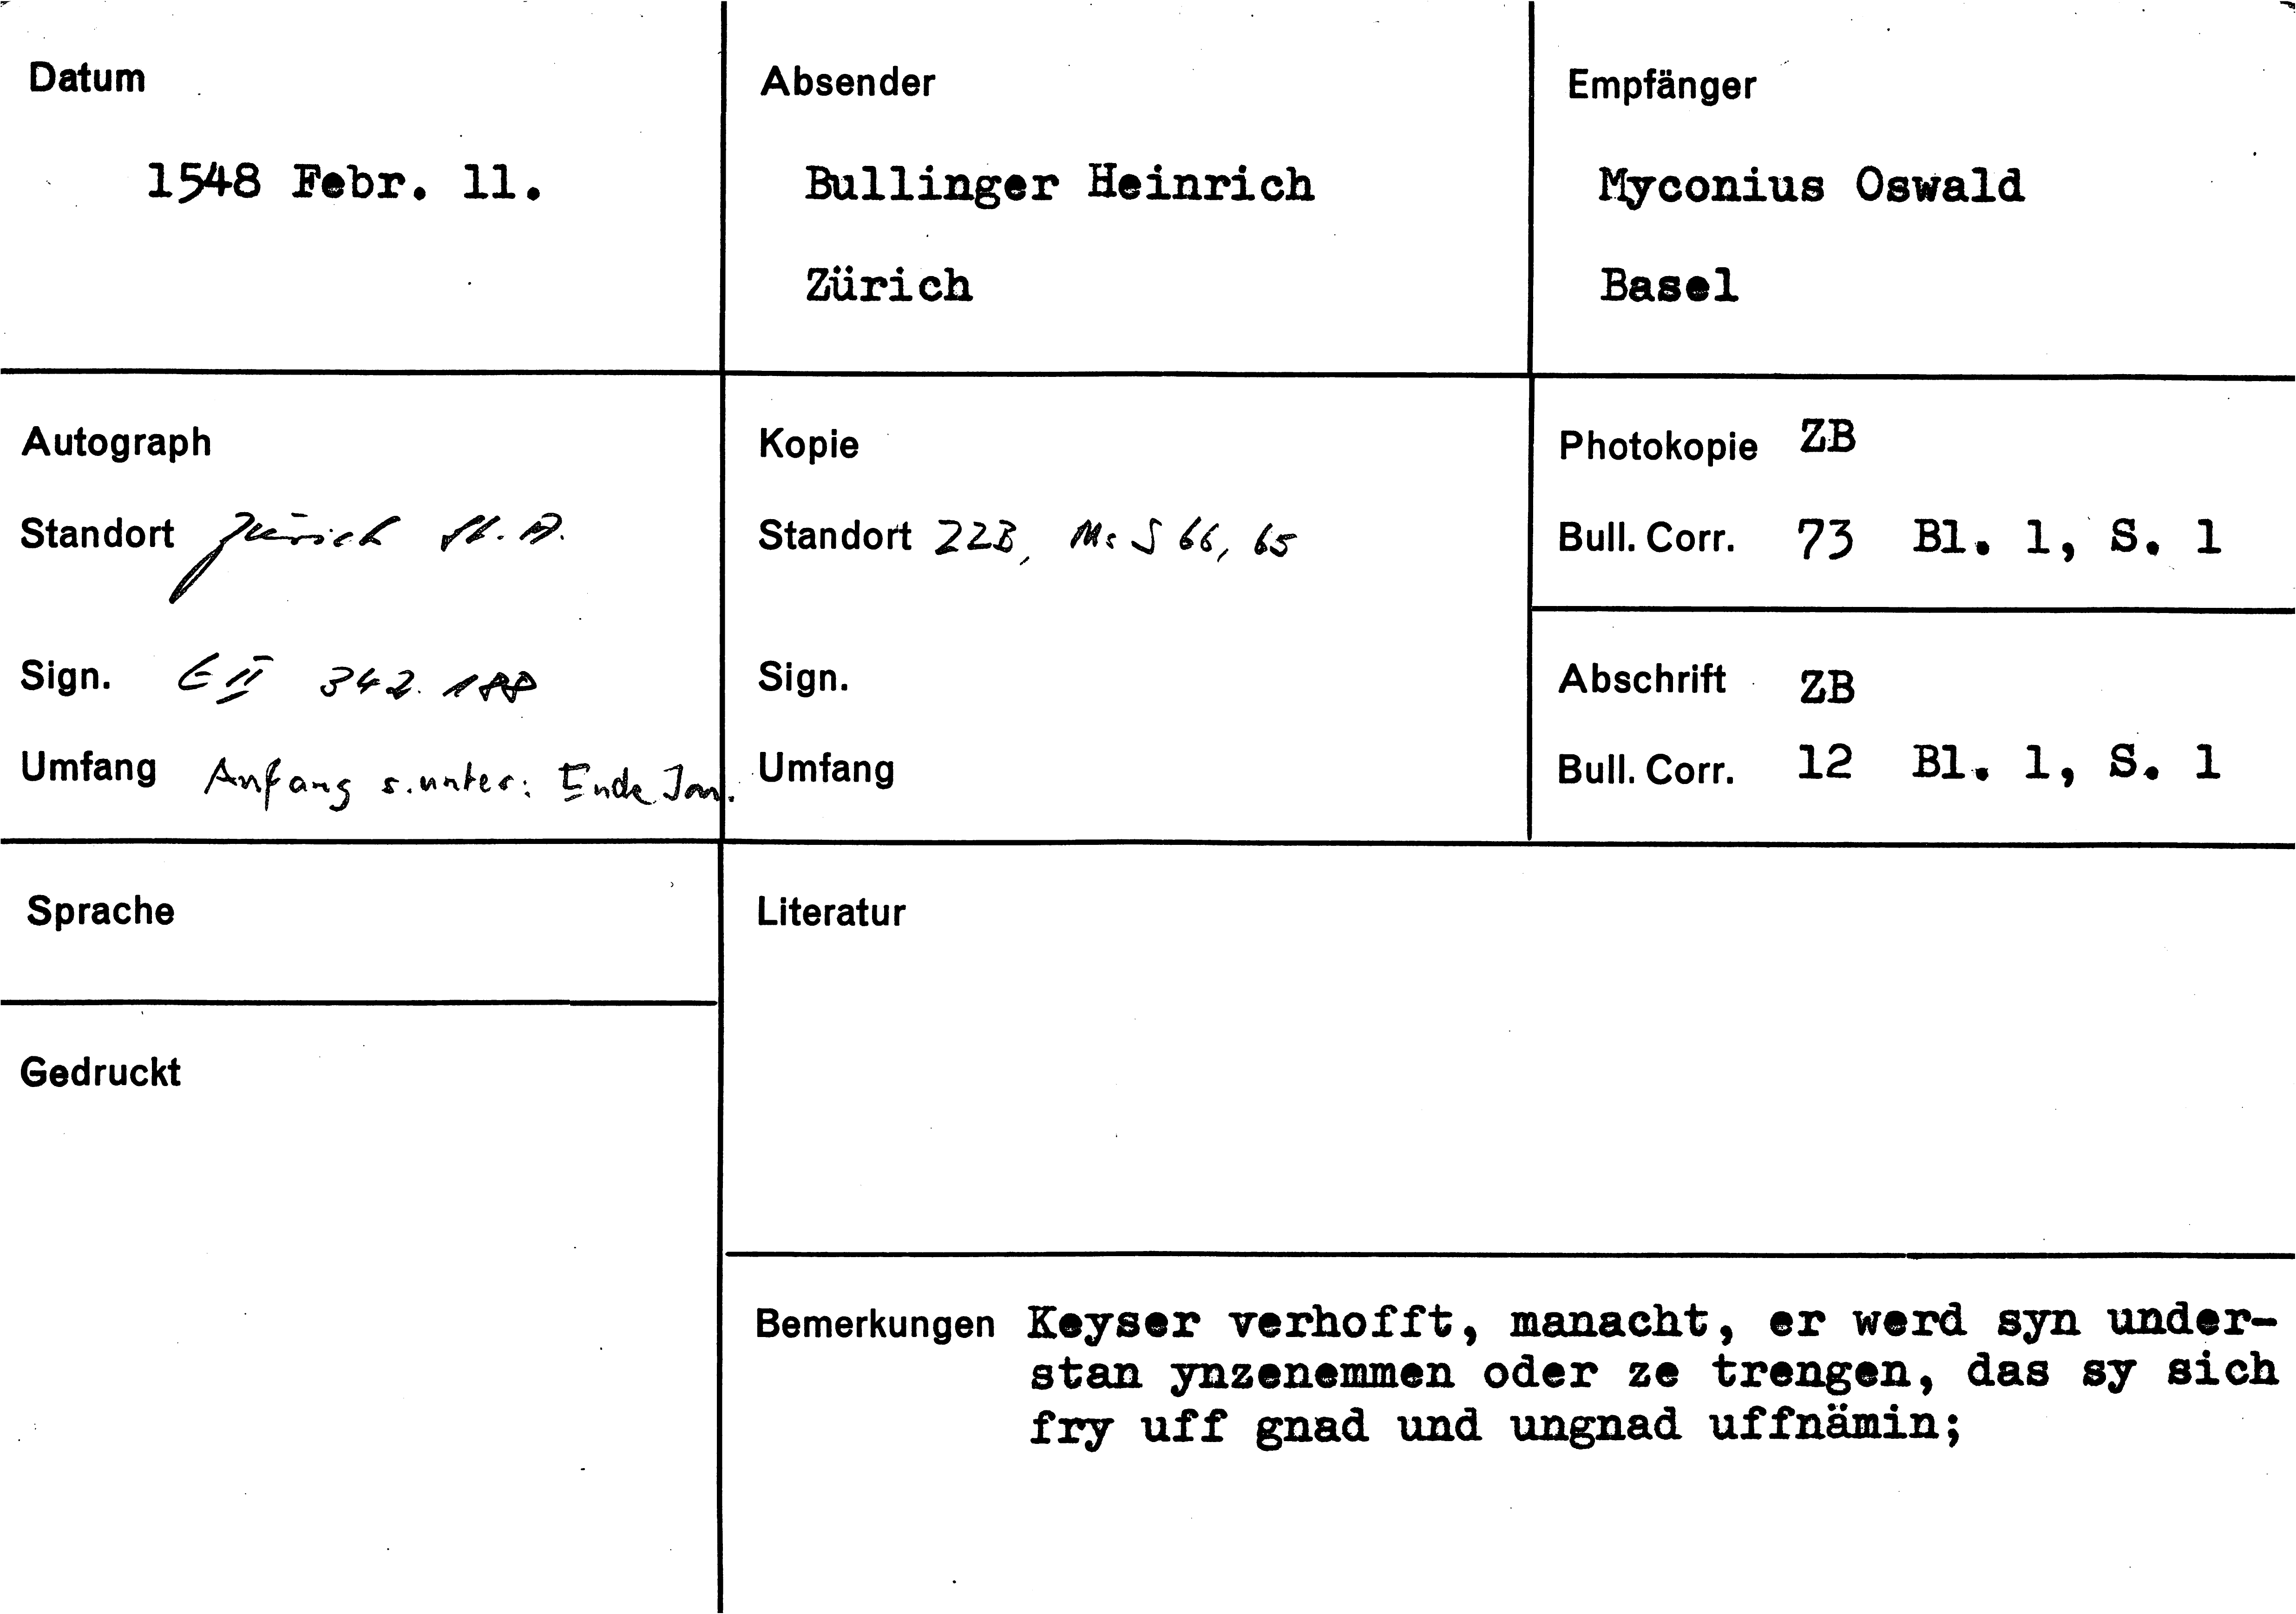 Datum
1548 Febr. 11.
Absender
Bullinger Heinrich
Zürich
Empfänger
Myconius Oswald
Basel
Autograph
Standort Zürich St. A.
Sign. E II 342. 188
Umfang Anfang s. unter: Ende Jan.
Kopie
Standort ZZB, Ms S 66, 65
Sign.
Umfang
Photokopie ZB
Bull. Corr. 73 Bl. 1, S. 1
Abschrift ZB
Bull. Corr. 12 Bl. 1, S. 1
Sprache
Gedruckt
Literatur
Bemerkungen Keyser verhofft, manacht, er werd syn under-
stan ynzenemmen oder ze trengen, das sy sich
fry uff gnad und ungnad uffnämin;